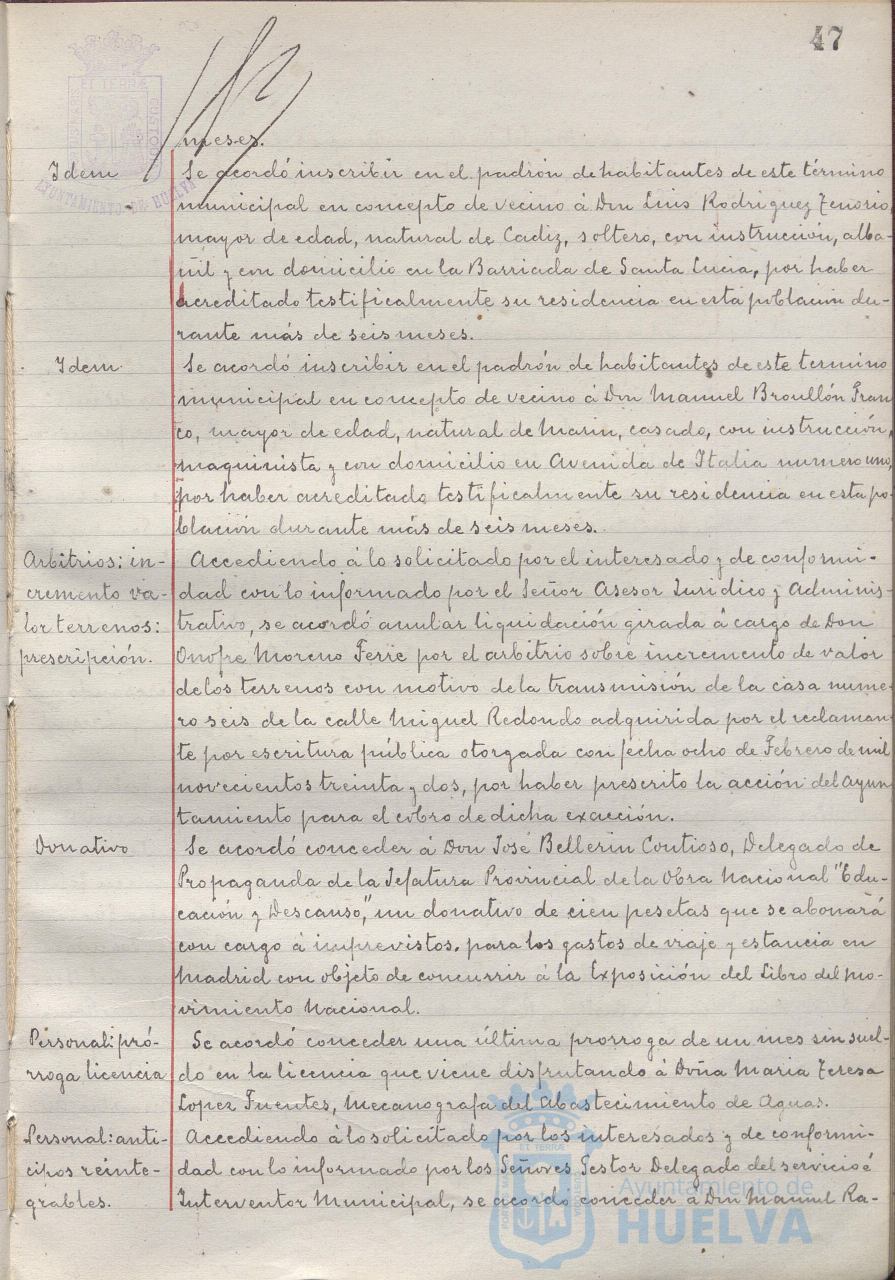 47
meses.
Idem
Se acordó inscribir en el padrón de habitantes de este término
municipal en concepto de vecino á Don Luis Rodriguez Tenorio,
mayor de edad, natural de Cadiz, soltero, con instrucción, alba-
ñil y con domicilio en la Barriada de Santa Lucia, por haber
acreditado testificalmente su residencia en esta poblacion du-
rante más de seis meses.
Idem
Se acordó inscribir en el padrón de habitantes de este termino
municipal en concepto de vecino á Don Manuel Broullón Fran
co, mayor de edad, natural de Marin, casado, con instrucción,
maquinista y con domicilio en Avenida de Italia numero uno,
por haber acreditado testificalmente su residencia en esta po-
blación durante más de seis meses.
Arbitrios: in-
cremento va-
lor terrenos:
prescripción.
Accediendo á lo solicitado por el interesado y de conformi-
dad con lo informado por el Señor Asesor Juridico y Adminis-
trativo, se acordó anular liquidación girada á cargo de Don
Onofre Moreno Ferie por el arbitrio sobre incremento de valor
de los terrenos con motivo de la transmisión de la casa nume-
ro seis de la calle Miguel Redondo adquirida por el reclaman-
te por escritura pública otorgada con fecha ocho de Febrero de mil
novecientos treinta y dos, por haber prescrito la acción del Ayun
tamiento para el cobro de dicha exacción.
Donativo
Se acordó conceder á Don José Bellerin Contioso, Delegado de
Propaganda de la Jefatura Provincial de la Obra Nacional "Edu-
cación y Descanso," un donativo de cien pesetas que se abonará
con cargo á imprevistos, para los gastos de viaje y estancia en
Madrid con objeto de concurrir á la Exposición del Libro del Mo-
vimiento Nacional.
Personal: pró-
rroga licencia
Se acordó conceder una última prorroga de un mes sin suel-
do en la licencia que viene disfrutando á Doña Maria Teresa
Lopez Fuentes, Mecanografa del Abastecimiento de Aguas.
Personal: anti-
cipos reinte-
grables.
Accediendo á lo solicitado por los interesados y de conformi-
dad con lo informado por los Señores Gestor Delegado del servicio é
Interventor Municipal, se acordó conceder á Don Manuel Ra-
AYUNTAMIENTO DE HUELVA
Ayuntamiento de
HUELVA